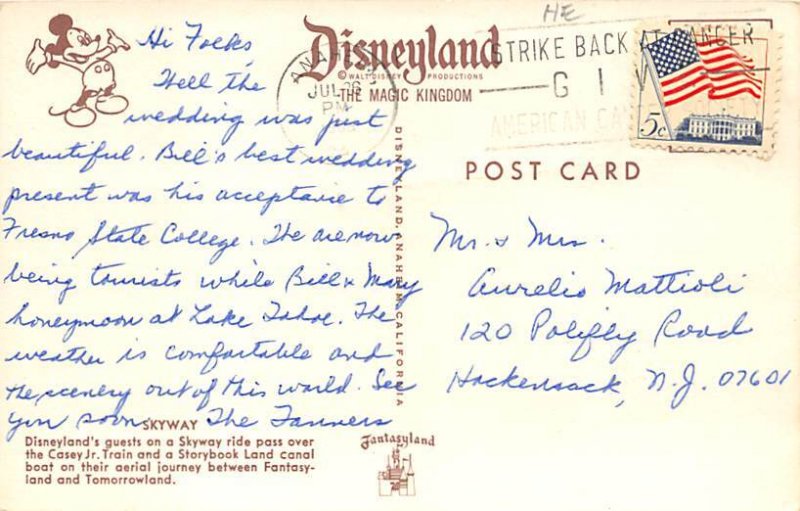 Hi Folks,
Well the
wedding was just
beautiful. Bill's best wedding
present was his acceptance to
Fresno State College. We are now
being tourists while Bill & Mary
honeymoon at Lake Tahoe. The
weather is comfortable and
the scenery out of this world. See
you soon The Tanners
SKYWAY
Disneyland's guests on a Skyway ride pass over
the Casey Jr. Train and a Storybook Land canal
boat on their aerial journey between Fantasy-
land and Tomorrowland.
Disneyland
© WALT DISNEY PRODUCTIONS
THE MAGIC KINGDOM
DISNEYLAND, ANAHEIM, CALIFORNIA
Fantasyland
HE
ANAHEIM
JUL 26
PM
STRIKE BACK AT CANCER
GIV
AMERICAN CANCER SOCIETY
5c
POST CARD
Mr. & Mrs.
Aurelio Mattioli
120 Polifly Road
Hackensack, N.J. 07601